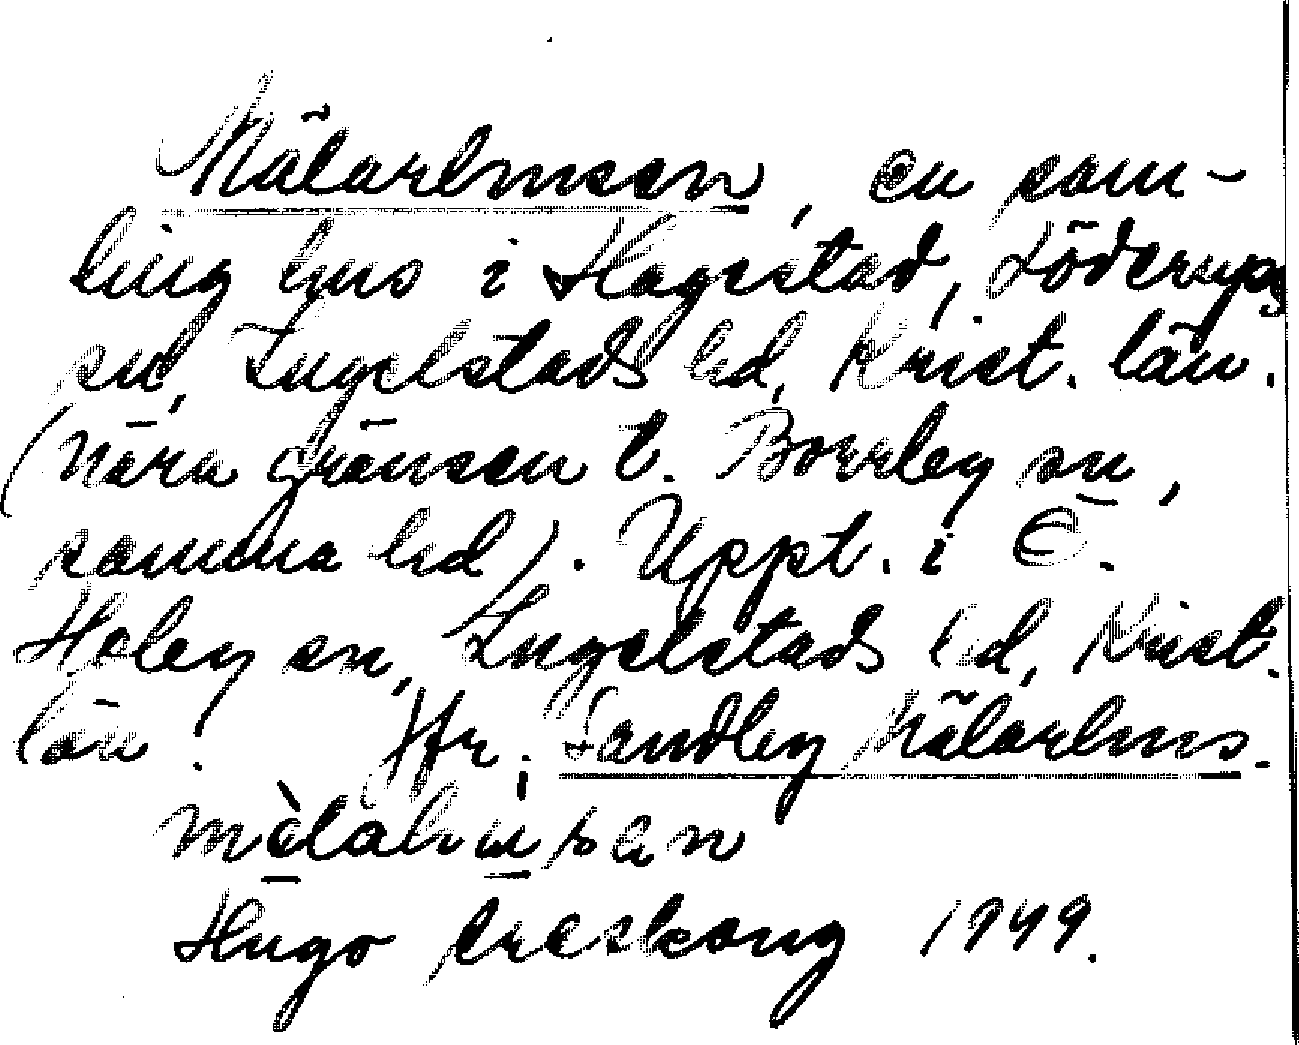 Målarhusen, en sam-
ling hus i Hagestad, Löderups
sn, Ingelstads hd, Krist. län.
(Nära gränsen t. Borrby sn,
samma hd). Uppt. i Ö.
Hoby sn, Ingelstads hd, Krist.
län. Jfr. Sandby Målarhus.
Hugo Areskoug 1949.